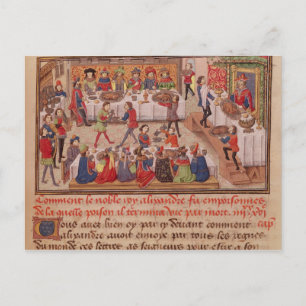 Comment le noble roy alixandre fu empoisonnes
de la quelle poison al termina vie par mort.
Vous avez bien oy par cy devant comment cap
alixandre avoit envoye par tous les regnes
du monde ces lettres as seigneurs pour estre a son